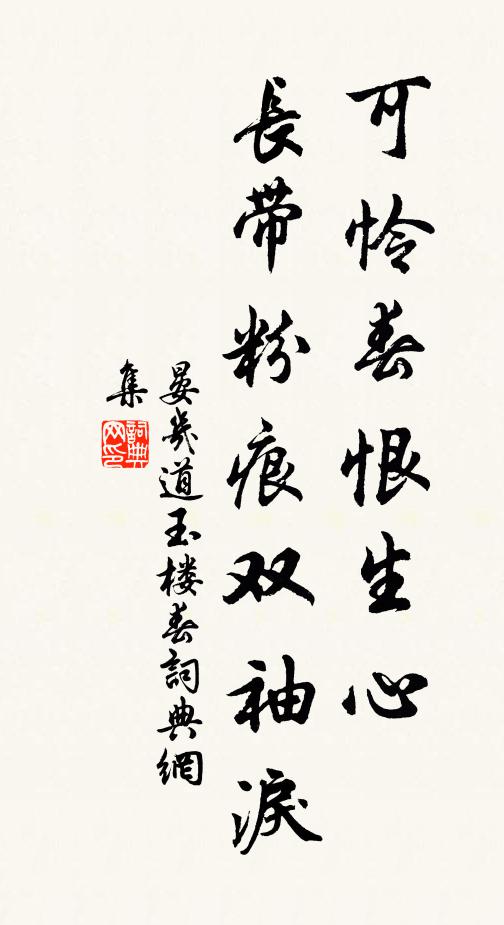 可怜春恨生心
長帶粉痕双袖淚
晏幾道玉楼春詞典網
集
詞典网印